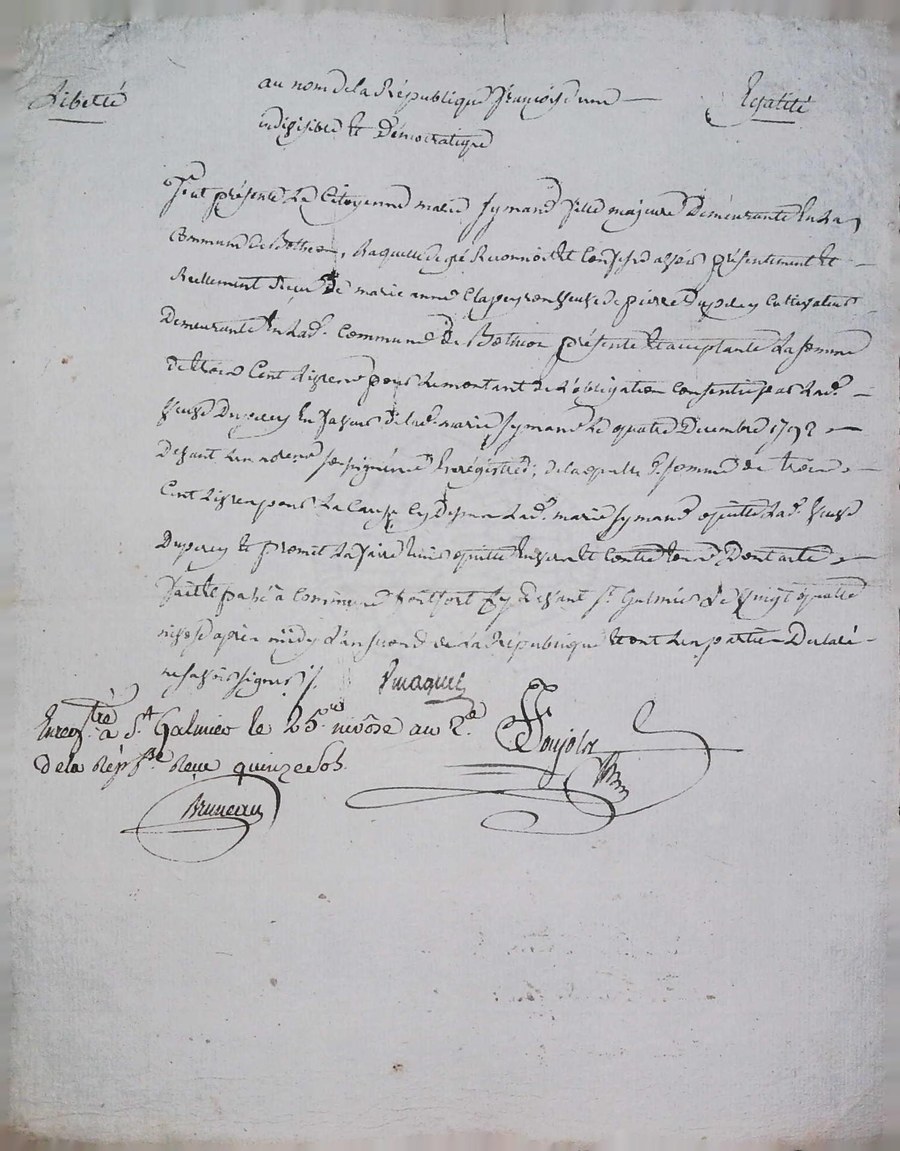 Liberté au nom de la République françoise une Egalité
indivisible et Démocratique
fut présente La Citoyenne marie fille majeure Demeurante En La
Commune de Bothéon, Laquelle de gré Reconnoit et Confesse avoir présentement et
Reellement Reçu De marie anne Clapeyron veuve de pierre Duperey Cultivateur
Demeurante En Lad. Commune De Bothéon présente et acceptante La somme
de trois Cent Livres pour Le montant de L'obligation Consentie par Lad.
veuve Duperey En faveur de lad. marie Le quatre Decembre 1792
devant Les notaires soussignés Enregistrée; de laquelle d. somme de trois
Cent Livres pour La Cause Cy Dessus Lad. marie quitte Lad. veuve
Duperey Et promet La faire tenir quitte Envers Et Contre tous, Dont acte
fait Et passé à Commune cy devant St. Galmier Le vingt quatre
nivose après midy L'an second de la République Et ont Les parties Declaré
ne savoir signer /.
Enregtré à St Galmier le 25 nivôse an 2e
de la Rép fse Reçu quinze sols.
Bruneau